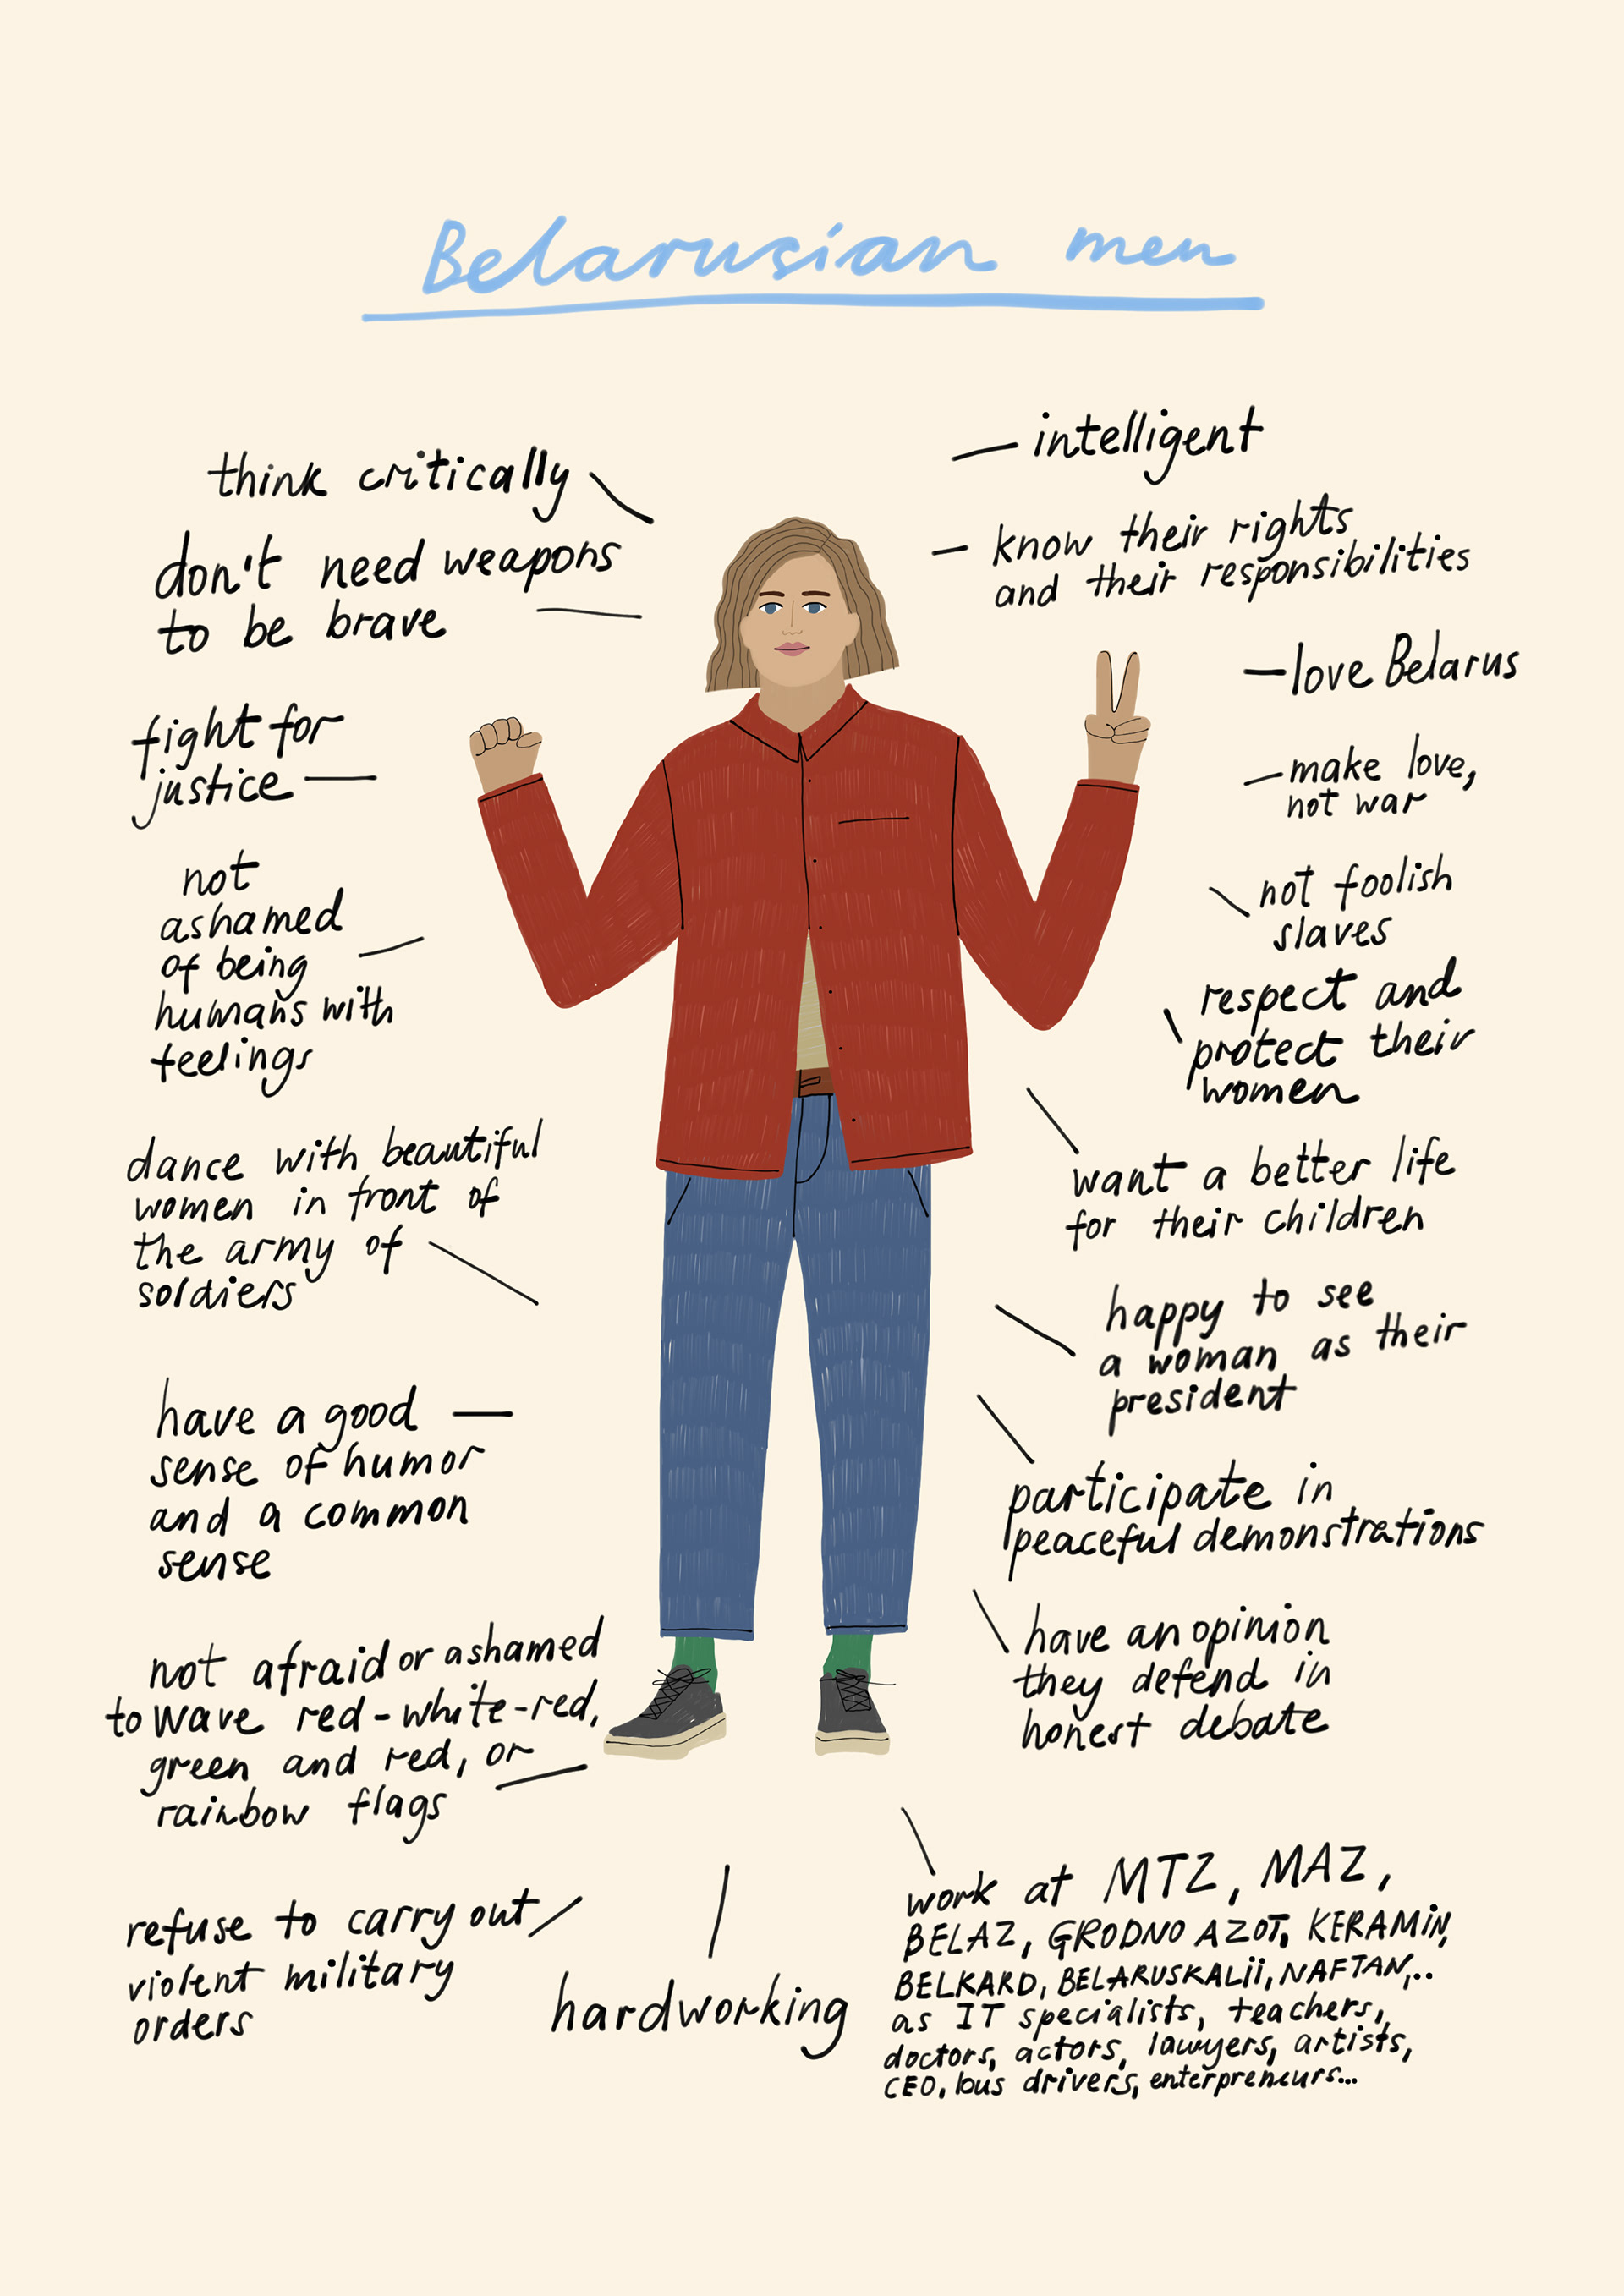 Belarusian men
think critically
don't need weapons
to be brave
fight for
justice
not
ashamed
of being
humans with
feelings
dance with beautiful
women in front of
the army of
soldiers
have a good
sense of humor
and a common
sense
not afraid or ashamed
to wave red-white-red,
green and red, or
rainbow flags
refuse to carry out
violent military
orders
hardworking
intelligent
know their rights
and their responsibilities
love Belarus
make love,
not war
not foolish
slaves
respect and
protect their
women
want a better life
for their children
happy to see
a woman as their
president
participate in
peaceful demonstrations
have an opinion
they defend in
honest debate
work at MTZ, MAZ,
BELAZ, GRODNO AZOT, KERAMiN,
BELKARD, BELARUSKALii, NAFTAN,..
as IT specialists, teachers,
doctors, actors, lawyers, artists,
CEO, bus drivers, enterpreneurs...